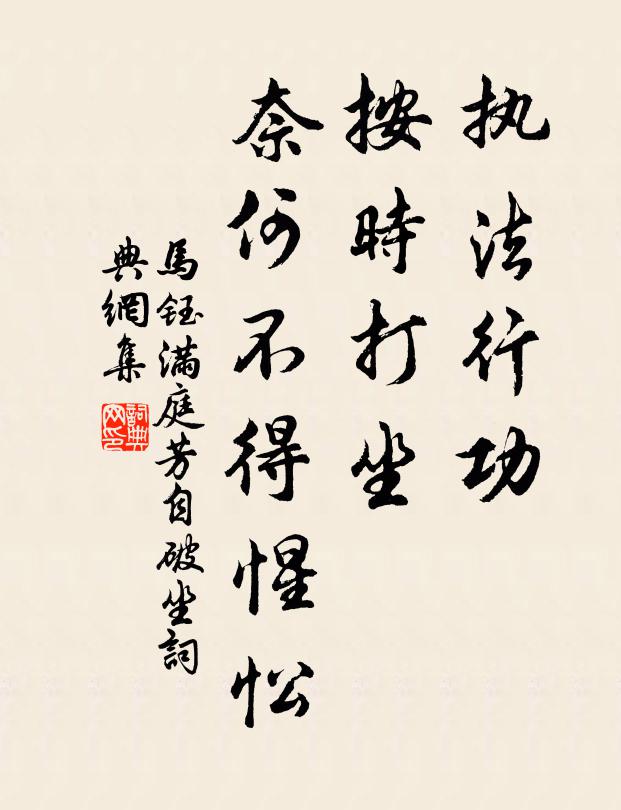 执法行功
按時打坐
奈何不得惺忪
馬鈺滿庭芳自破坐詞
典網集
詞典
网印